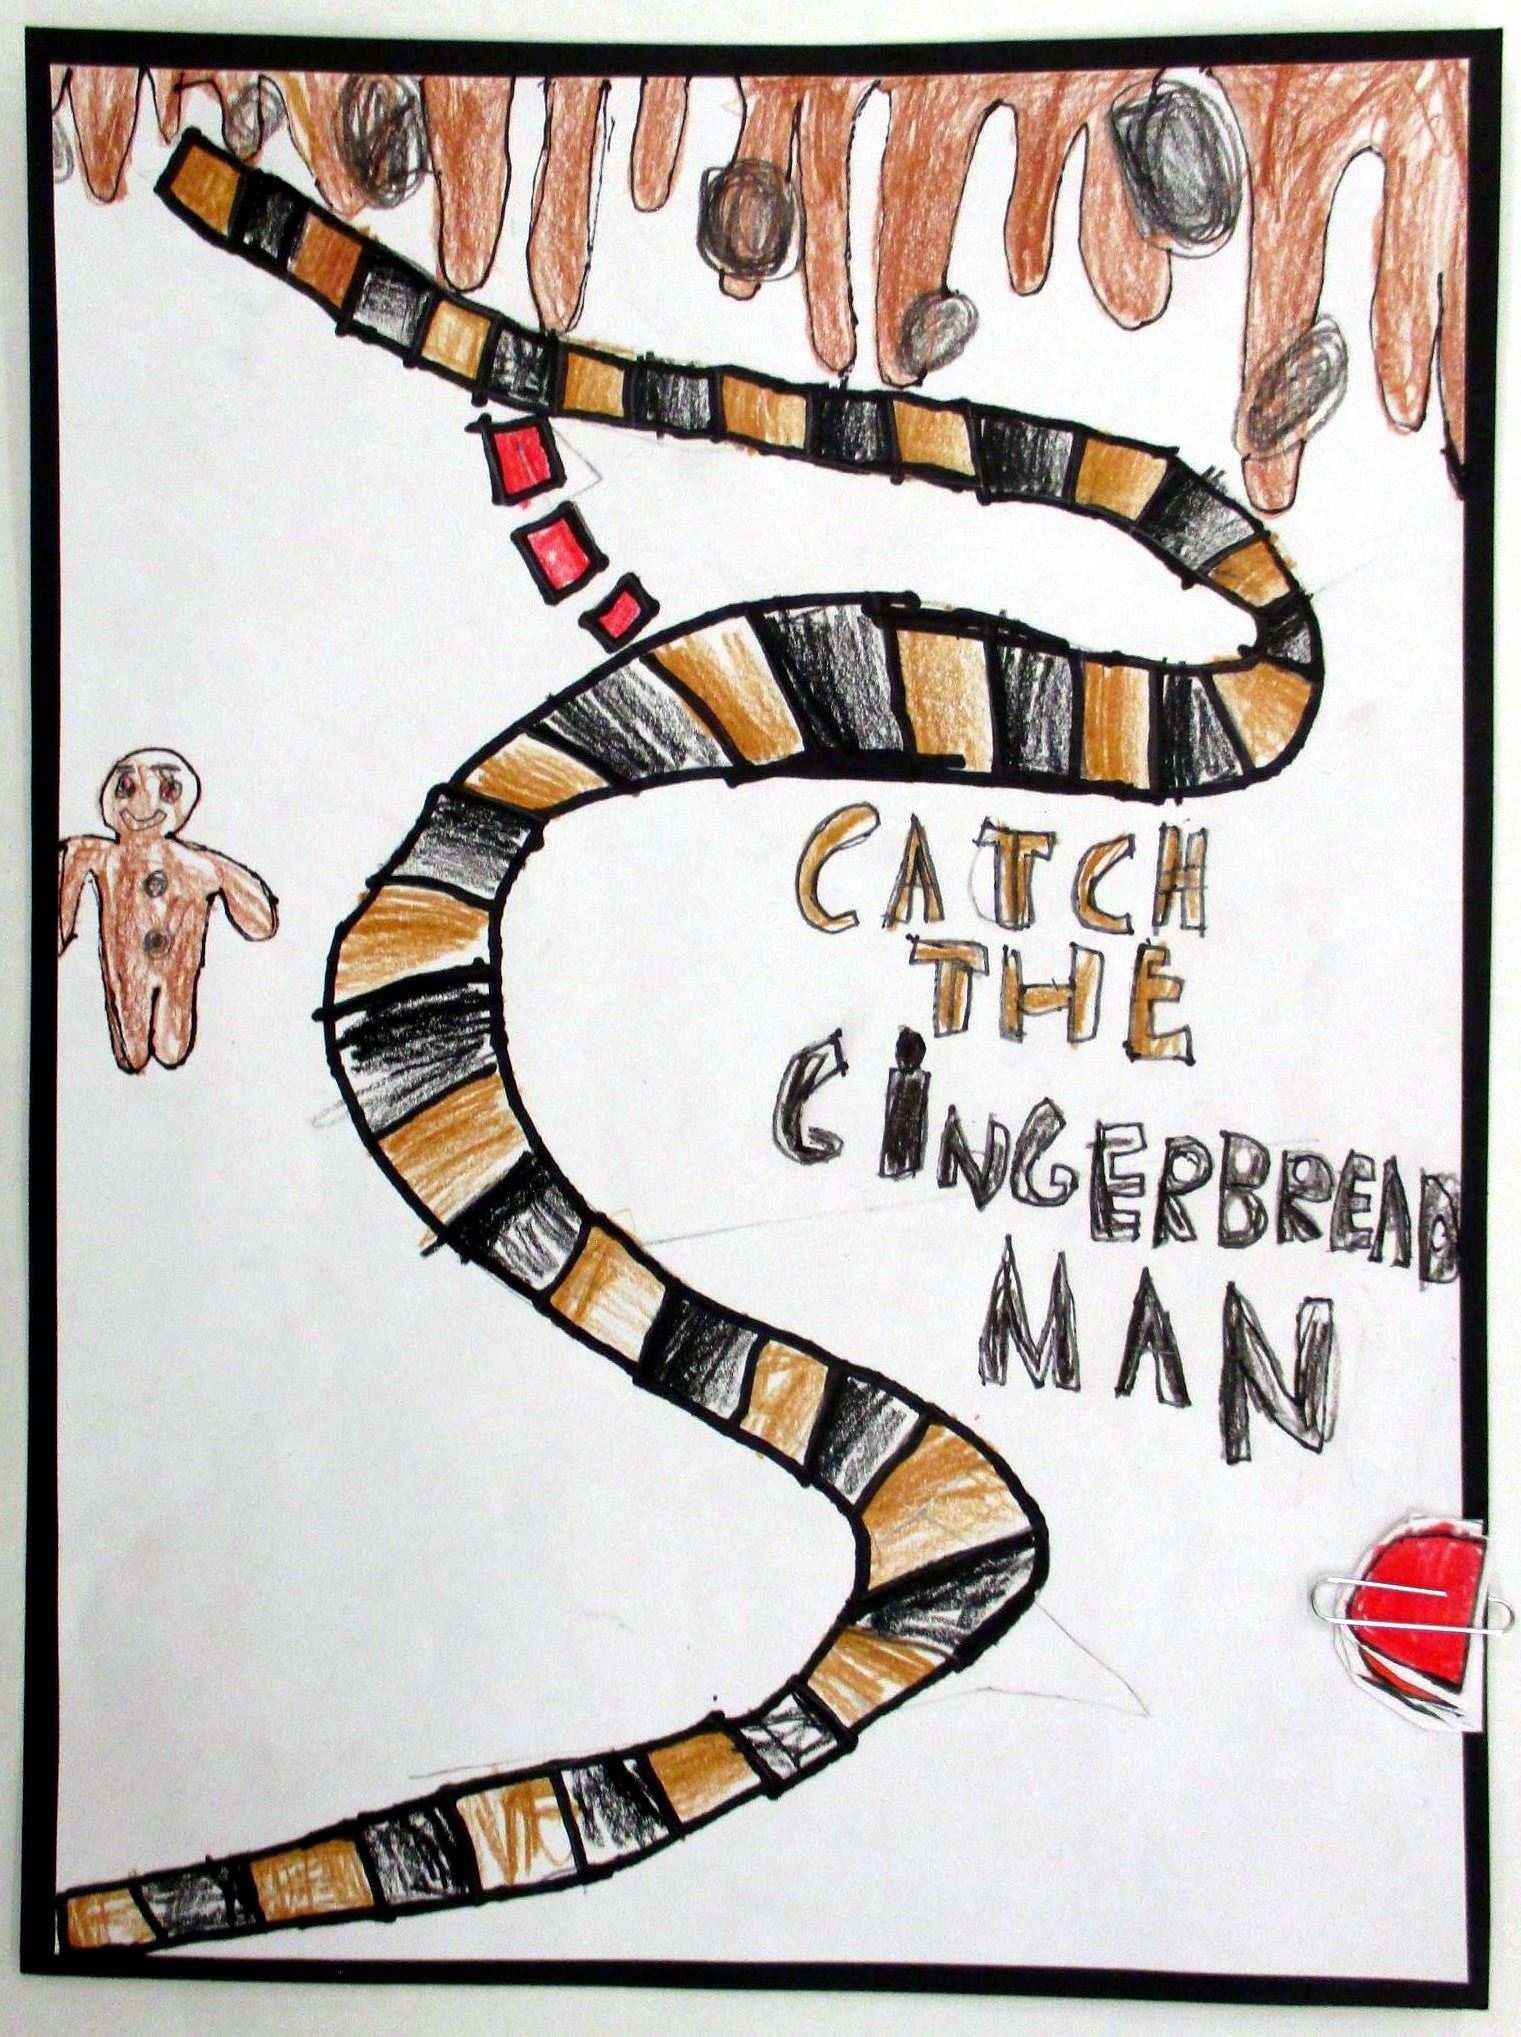 CATCH
THE
GiNGERBREAD
MAN